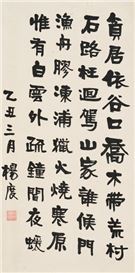 貧居依谷口喬木帶荒村
石路枉迴駕山家誰候門
漁舟膠凍浦獵火燒寒原
惟有白雲外疏鐘聞夜蝯
乙丑三月 楊度